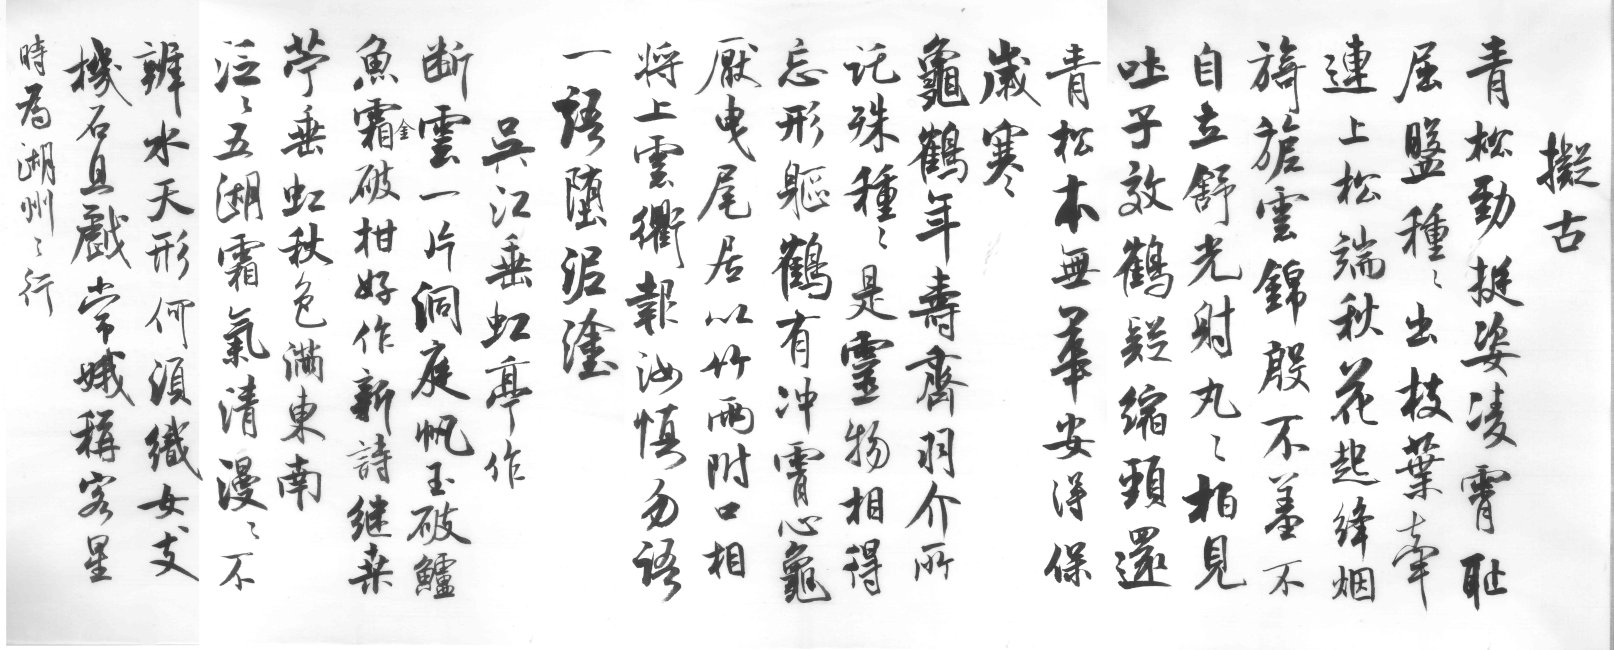 擬古
青松勁挺姿凌霄恥
屈盤種〻出枝葉牽
連上松端秋花起絳烟
旖旎雲錦殷不羞不
自立舒光射丸〻柏見
吐子效鶴疑縮頸還
青松本無華安得保
歲寒〻
龜鶴年壽齊羽介所
託殊種〻是靈物相得
忘形軀鶴有冲霄心龜
厭曳尾居以竹兩附口相
将上雲衢報汝慎勿語
一語堕泥塗
吳江垂虹亭作
断雲一片洞庭帆玉破鱸
魚霜金破柑好作新詩継桒
苧垂虹秋色滿東南
泛〻五湖霜氣清漫〻不
辨水天形何須織女支
機石且戲常娥稱客星
時為湖州〻行